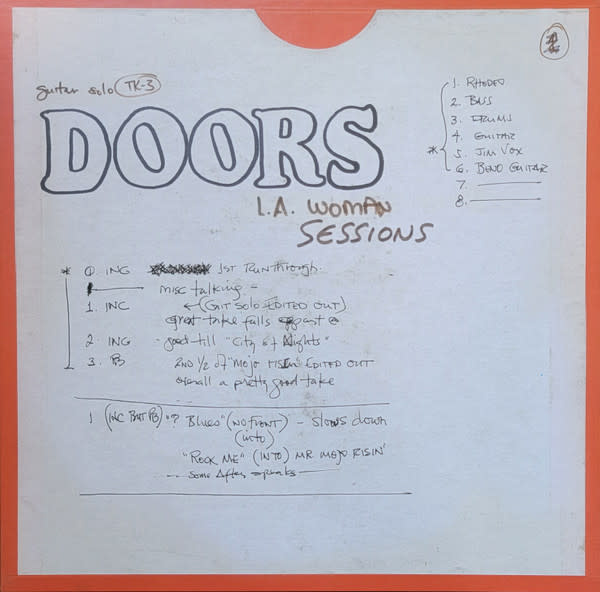 guitar solo TK-3
DOORS
L.A. WOMAN
SESSIONS
1. RHODES
2. BASS
3. DRUMS
4. GUITAR
* 5. JIM VOX
6. BEND GUITAR
7.
8.
* 0. ING 1ST RUNTHROUGH.
misc talking -
1. INC ← (GIT SOLO EDITED OUT)
great take falls apart
2. ING - good till "City of Nights"
3. PB 2ND 1/2 of "Mojo RISIN" EDITED OUT
overall a pretty good take
1 (INC BUT PB) "? Blues" (NO FRONT) - Slows down
(into)
"ROCK ME" (INTO) MR MOJO RISIN'
some After